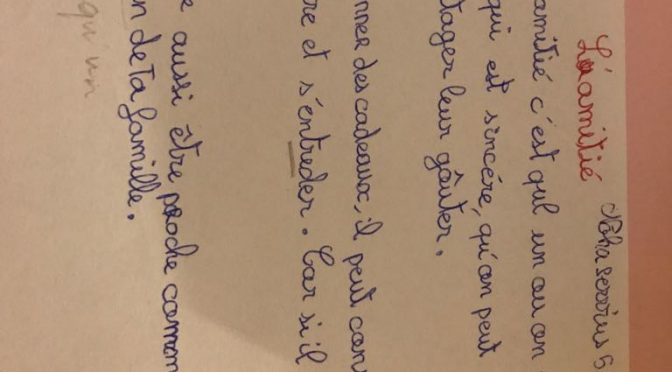 Noha
L'amitié
amitié c'est qu'l un ou on
qui est sincére, qu'on peut
tager leur goûter.
nner des cadeaux, il peut con
re et s'entreder. Car si il
e aussi être proche comm
n de ta famille.
qu'un